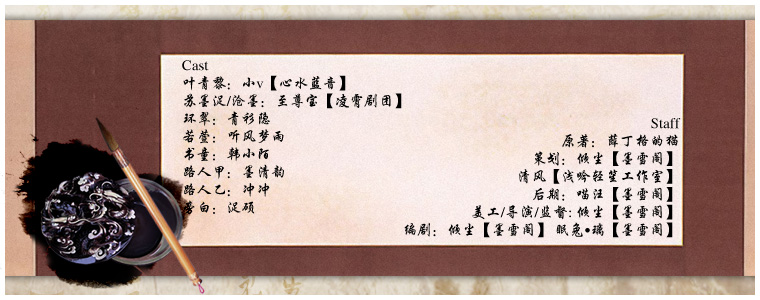 Cast
叶青黎：小v【心水蓝音】
苏墨浞/沧墨：至尊宝【凌霄剧团】
环翠：青衫隐
若萱：听风梦雨
书童：韩小陌
路人甲：墨清韵
路人乙：冲冲
旁白：浞硕
Staff
原著：薛丁格的猫
策划：倾尘【墨雪阁】
清风【浅吟轻笙工作室】
后期：喵汪【墨雪阁】
美工/导演/监督:倾尘【墨雪阁】
编剧：倾尘【墨雪阁】 眠兔•璃【墨雪阁】